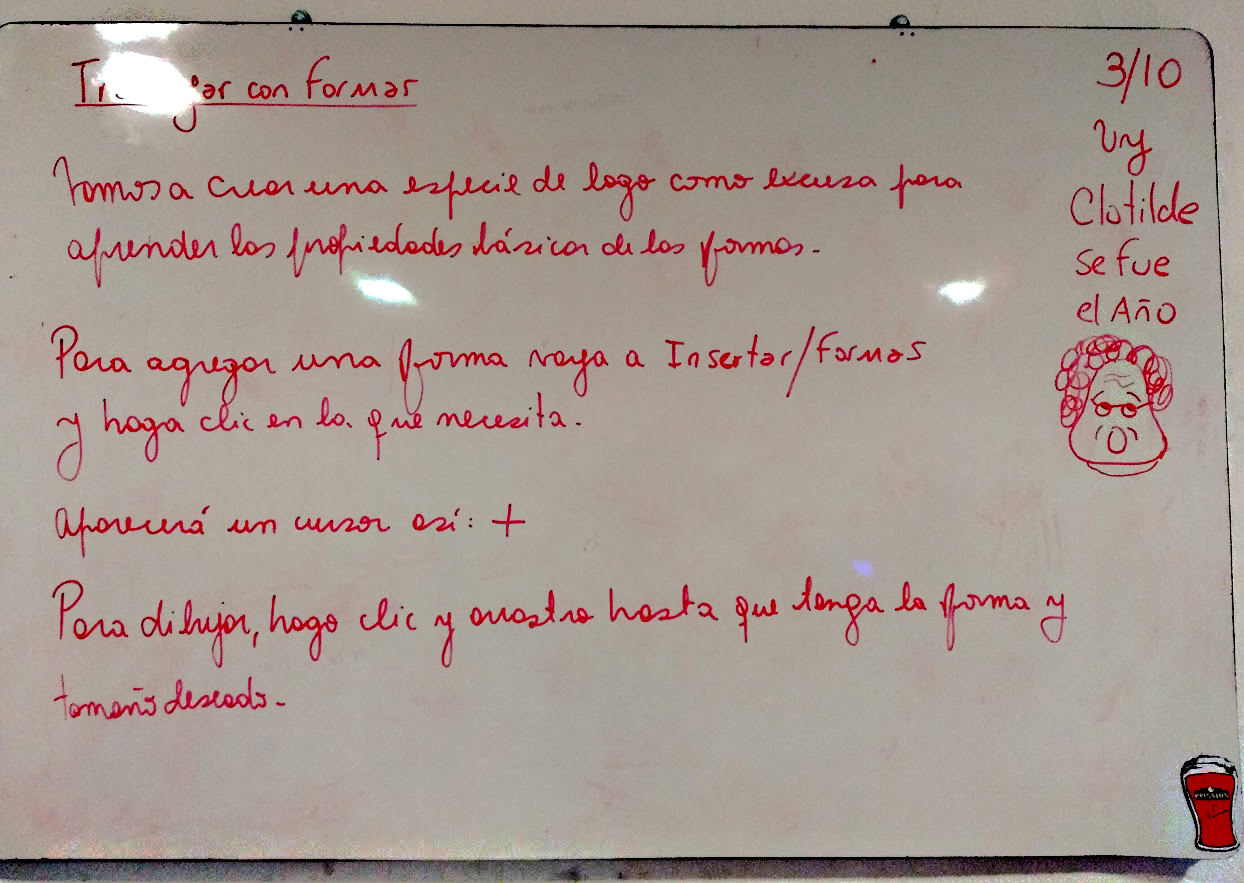 con Formas
Vamos a crear una especie de logo como excusa para
aprender las propiedades básicas de las formas.
Para agregar una forma vaya a Insertar/Formas
y haga clic en la que necesita.
Aparecerá un cursor así: +
Para dibujar, haga clic y arrastre hasta que tenga la forma y
tamaño deseado.
3/10
Uy
Clotilde
se fue
el Año